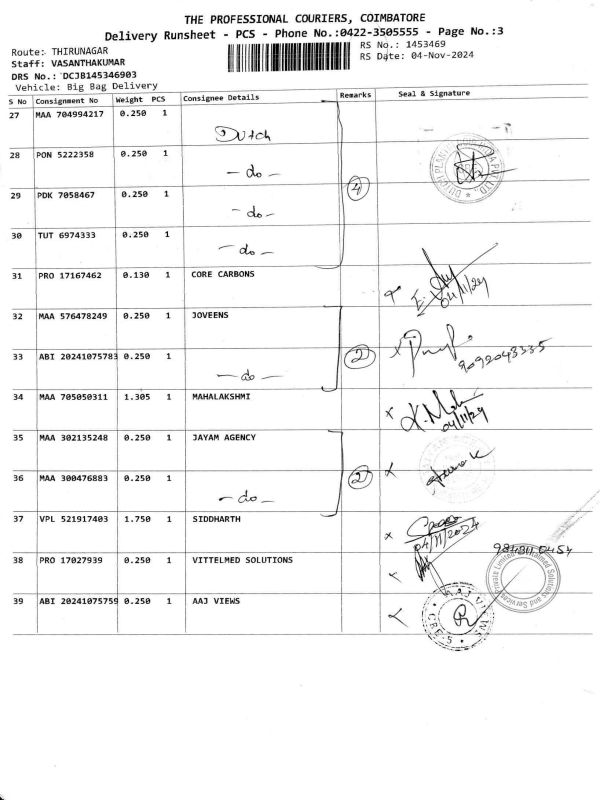 THE PROFESSIONAL COURIERS, COIMBATORE
Delivery Runsheet - PCS - Phone No.:0422-3505555 - Page No.:3
Route: THIRUNAGAR
RS No.: 1453469
Staff: VASANTHAKUMAR
RS Date: 04-Nov-2024
DRS No.: DCJB145346903
Vehicle: Big Bag Delivery
S No Consignment No Weight PCS Consignee Details Remarks Seal & Signature
27 MAA 704994217 0.250 1 Dutch
28 PON 5222358 0.250 1 - do -
29 PDK 7058467 0.250 1 - do - 4
30 TUT 6974333 0.250 1 - do -
31 PRO 17167462 0.130 1 CORE CARBONS 04/11/24
32 MAA 576478249 0.250 1 JOVEENS
33 ABI 20241075783 0.250 1 - do - 2 9092043335
34 MAA 705050311 1.305 1 MAHALAKSHMI 04/11/24
35 MAA 302135248 0.250 1 JAYAM AGENCY
36 MAA 300476883 0.250 1 - do - 2
37 VPL 521917403 1.750 1 SIDDHARTH 04/11/2024
38 PRO 17027939 0.250 1 VITTELMED SOLUTIONS
39 ABI 20241075759 0.250 1 AAJ VIEWS
CBE-5